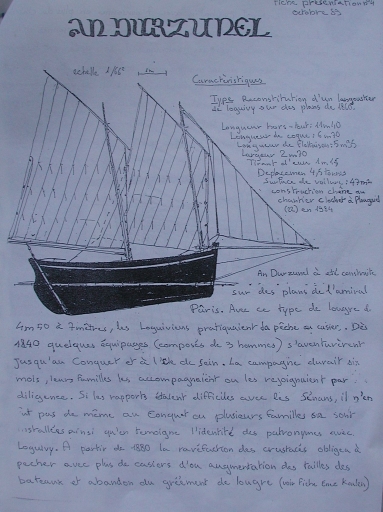 Fiche présentation n°4
octobre 89
AN DURZUNEL
échelle 1/66°
Caractéristiques
Type Reconstitution d'un langoustier
de loguivy sur des plans de
Longueur hors-tout : 11m40
Longueur de coque : 6m70
Longueur de flottaison :
Largeur 2m70
Tirant d'eau 1m45
Deplacement 4,5 tonnes
Surface de voilure : 47m²
construction chêne au
chantier à Plougiel
(22) en 1984
An Durzunel à été construite
sur des plans de l'amiral
Pâris. Avec ce type de lougre de
4m50 à 7 mètres, les Loguiviens pratiquaient la pêche au casier. Dès
1840 quelques équipages (composés de 3 hommes) s'aventurèrent
jusqu'au Conquet et à l'île de Sein. La campagne durait six
mois, leurs familles les accompagnaient ou les rejoignaient par
diligence. Si les rapports étaient difficiles avec les Sénans, il n'en
fut pas de même au Conquet ou plusieurs familles se sont
installées ainsi qu'en temoigne l'identité des patronymes avec
Loguivy. A partir de 1880 la raréfaction des crustacés obligea à
pecher avec plus de casiers d'ou augmentation des tailles des
bateaux et abandon du gréement de lougre (voir Fiche Enez Koalen)